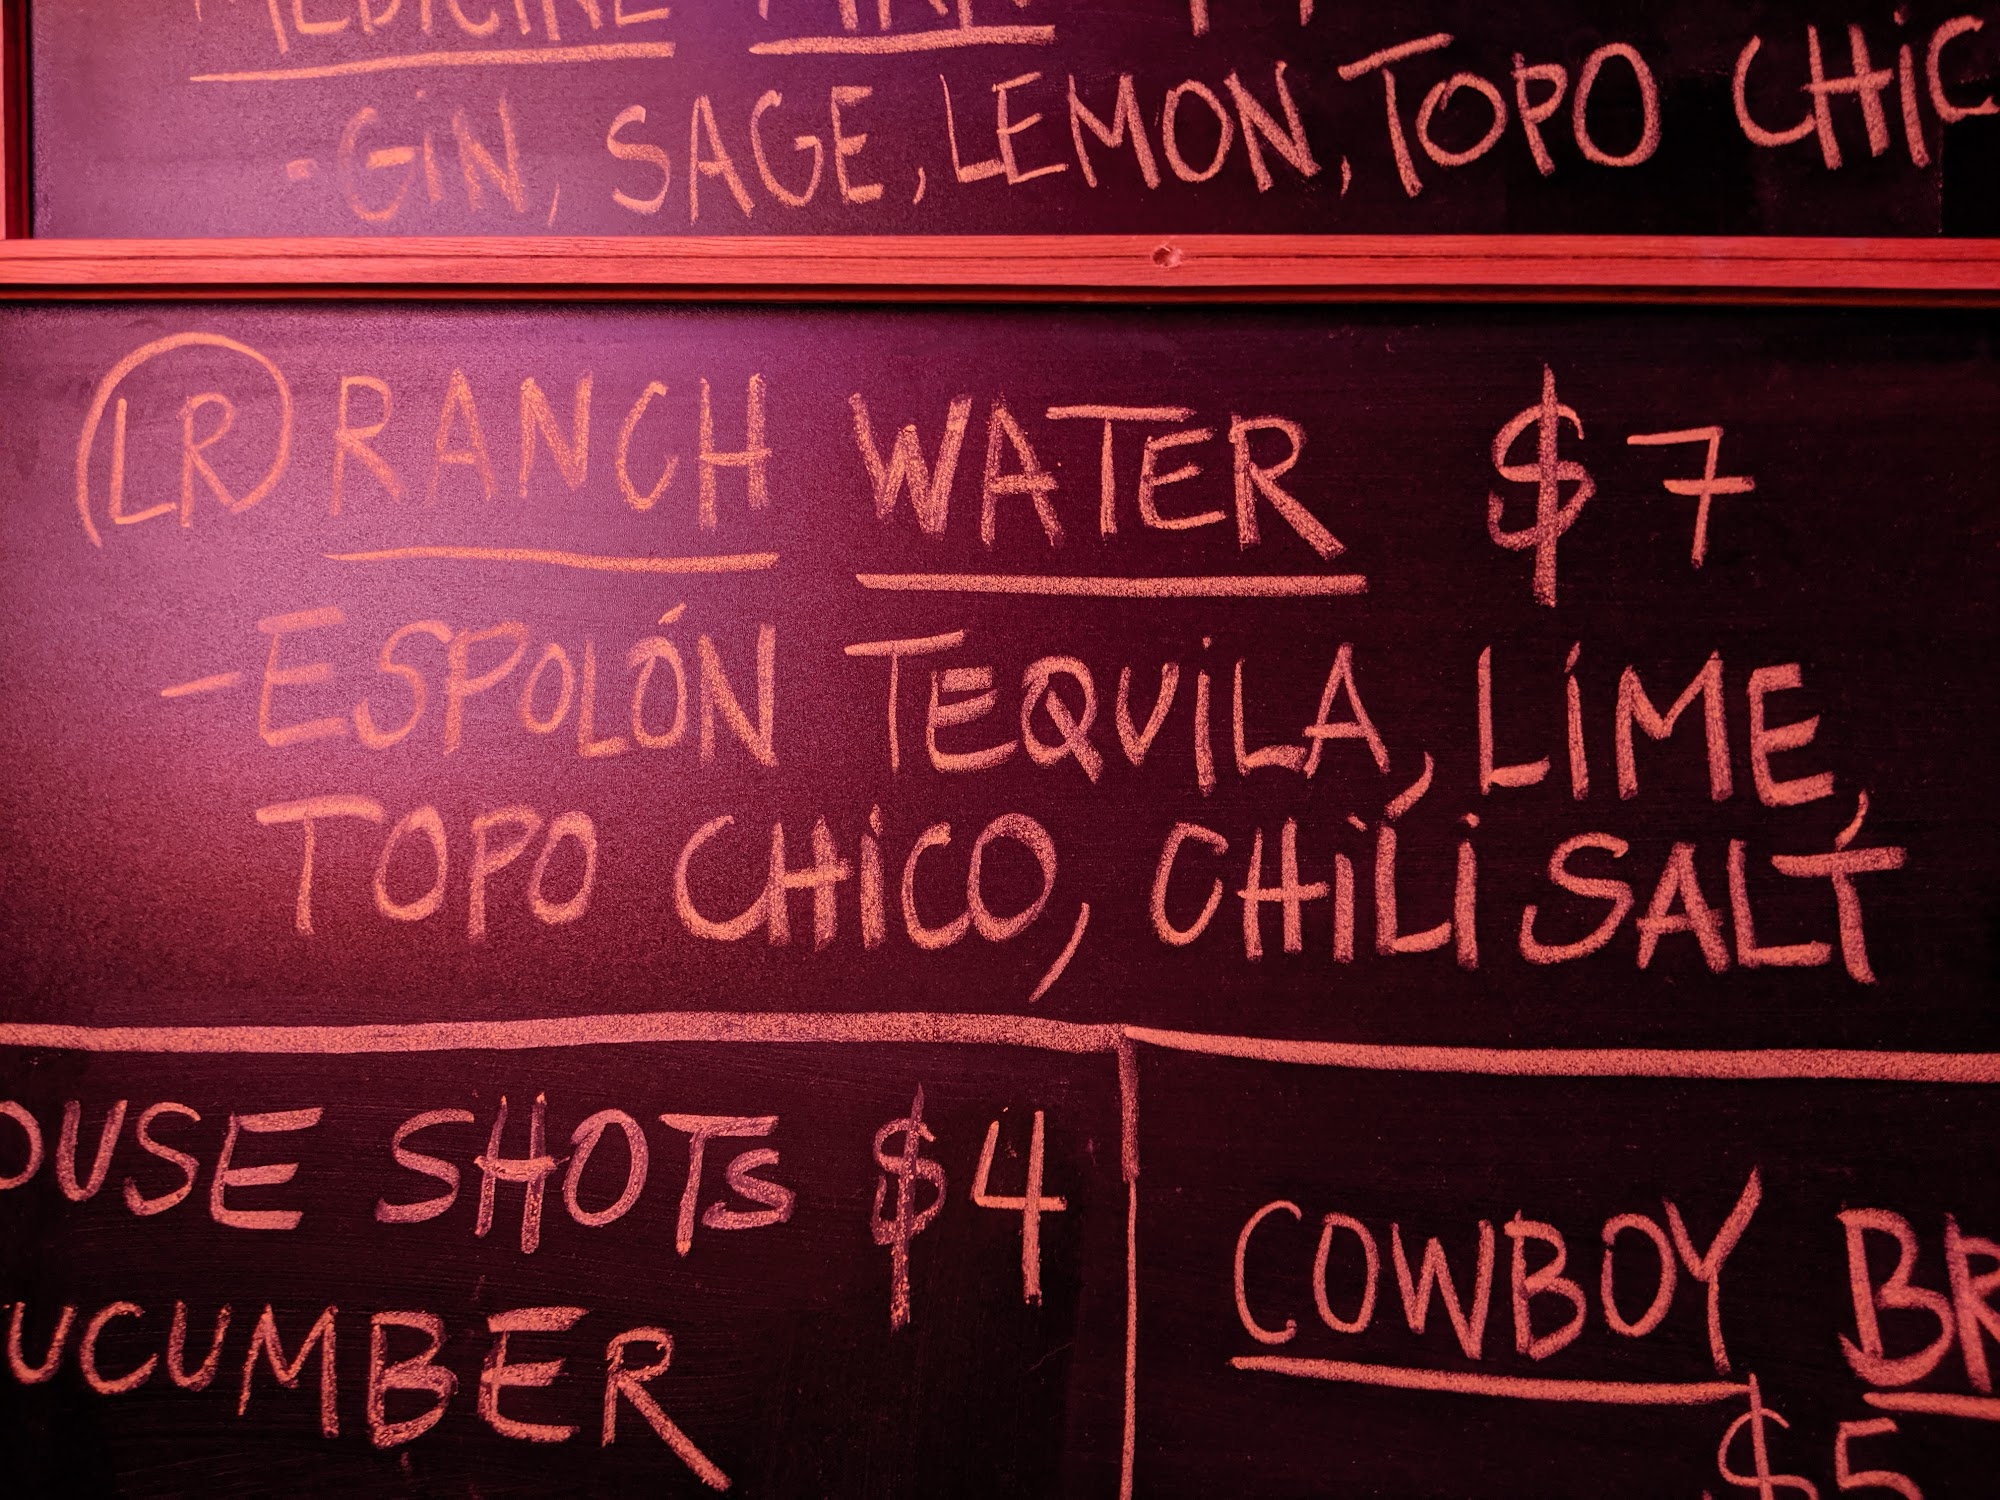 MEDICINE
- GIN, SAGE, LEMON, TOPO CHIC
LR RANCH WATER $7
- ESPOLÓN TEQUILA, LIME,
TOPO CHICO, CHILI SALT
OUSE SHOTS $4
UCUMBER
COWBOY BR
$5